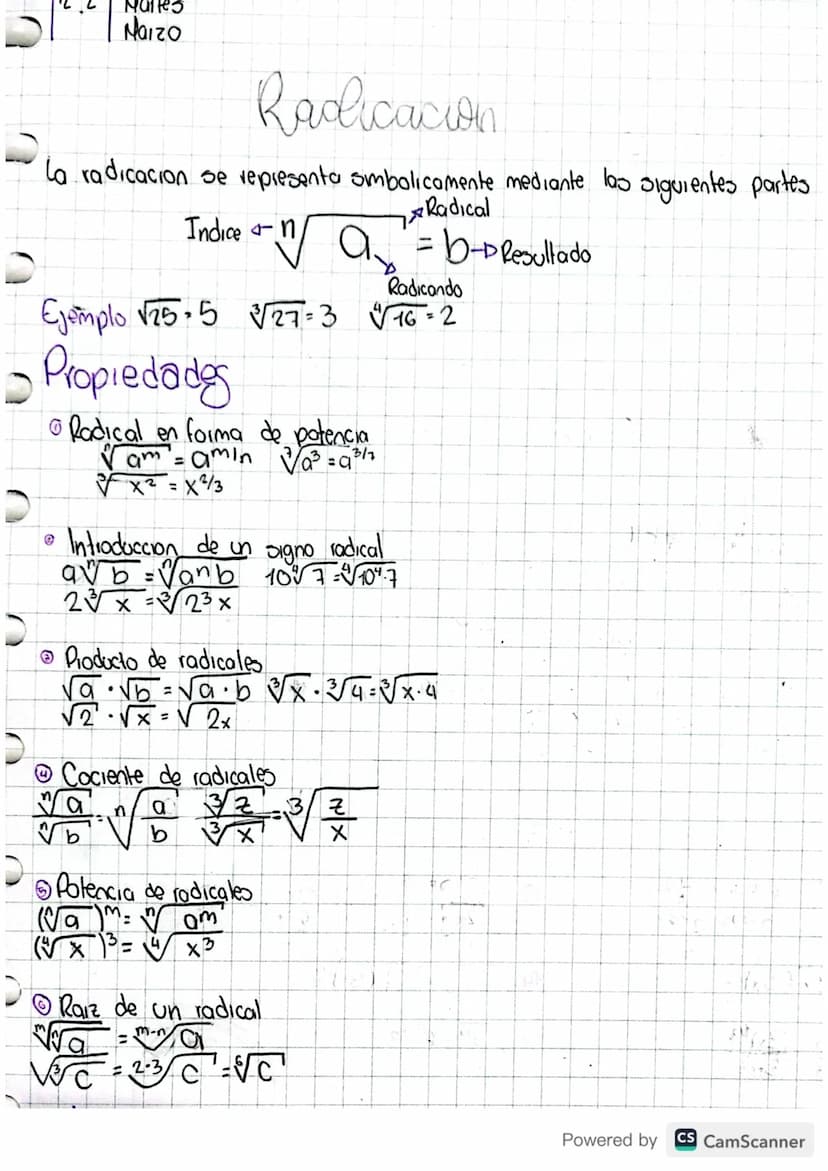 Martes
Marzo
Radicacion
La radicacion se representa simbolicamente mediante las siguientes partes
Indice ← ⁿ√a = b → Resultado
Radical
Radicando
Ejemplo √25 = 5 ³√27 = 3 ⁴√16 = 2
Propiedades
① Radical en forma de potencia
ⁿ√am = am/n ⁷√a³ = a³/⁷
³√x² = x²/³
② Introduccion de un signo radical
aⁿ√b = ⁿ√anb 10⁴√7 = ⁴√10⁴·7
2³√x = ³√2³x
③ Producto de radicales
√a · √b = √a·b ³√x · ³√4 = ³√x·4
√2 · √x = √2x
④ Cociente de radicales
ⁿ√a / ⁿ√b = ⁿ√a/b ³√z / ³√x = ³√z/x
⑤ Potencia de radicales
(ⁿ√a)ᵐ = ⁿ√am
(⁴√x)³ = ⁴√x³
⑥ Raiz de un radical
ᵐ√ⁿ√a = ᵐ⁻ⁿ√a
√³√c = ²·³√c = ⁶√c
Powered by CS CamScanner